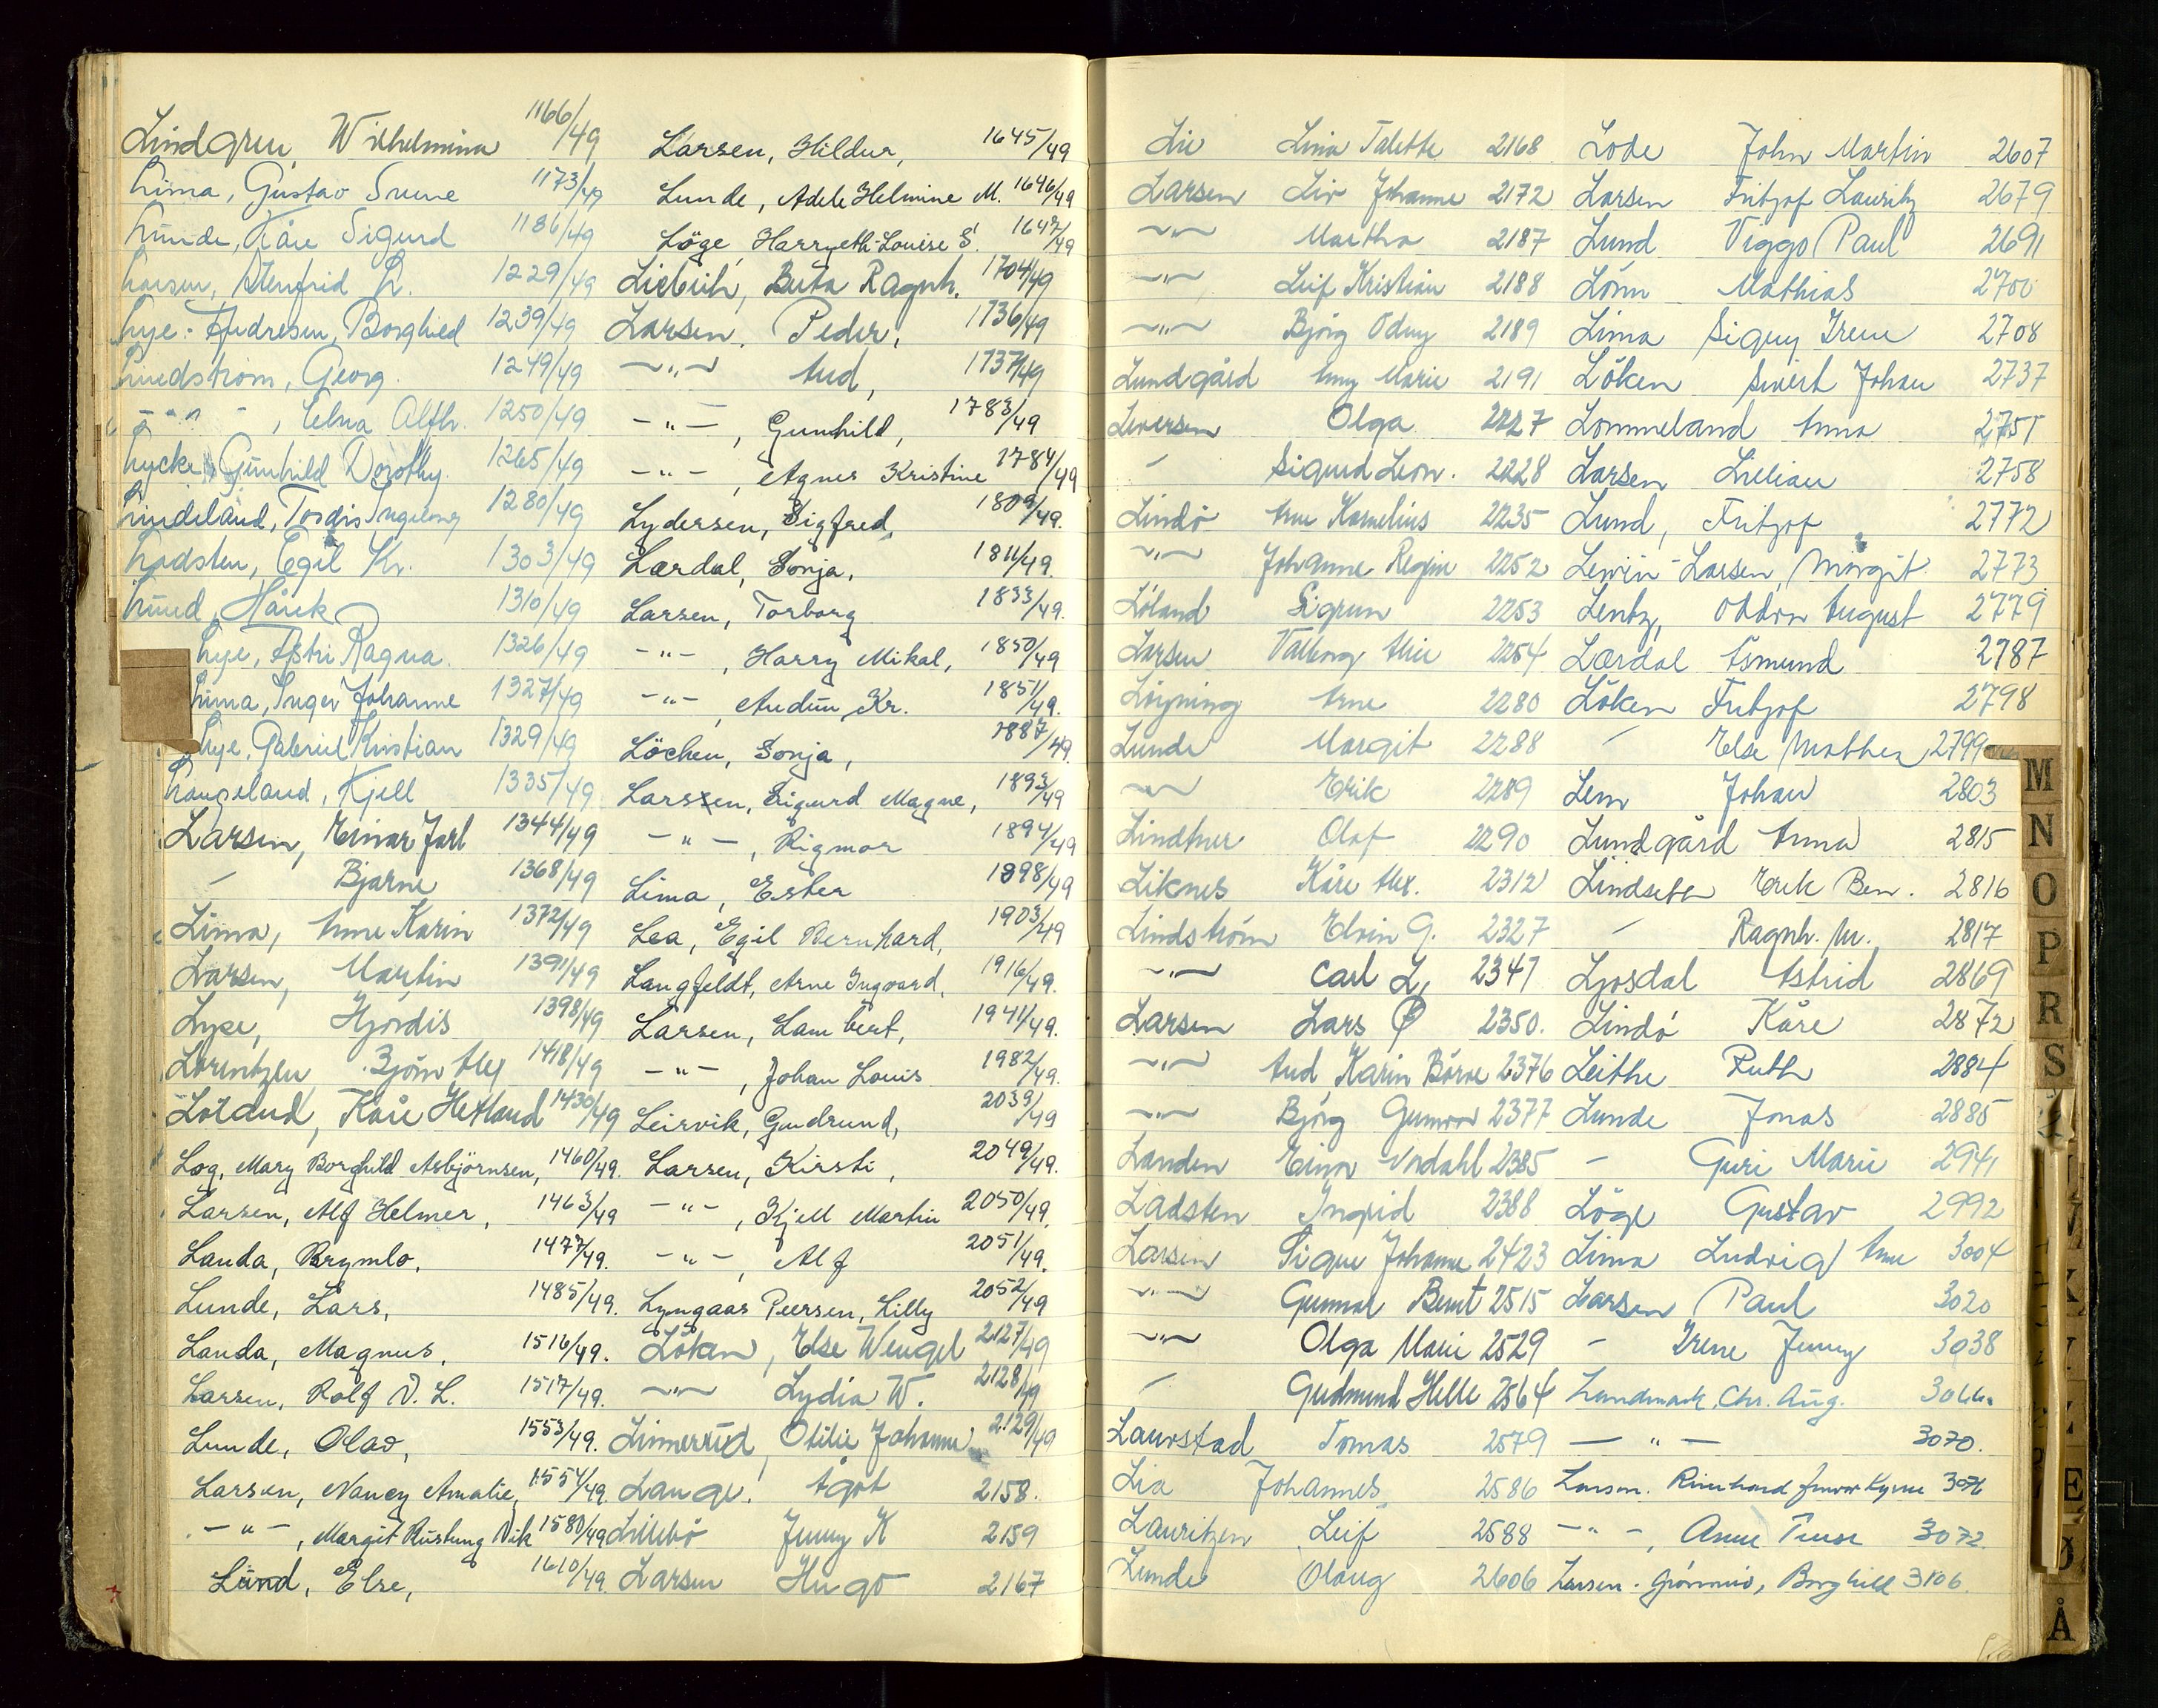 Lindgren, Wilhelmina 1166/49
Lima, Gustav Svene 1173/49
Lunde, Kåre Sigurd 1186/49
Larsen, Stenfrid L. 1229/49
Lye-Andresen, Borghild 1239/49
Lindstrøm, Georg. 1249/49
-"- , Elna Alfh. 1250/49
Lycke, Gunhild Dorothy 1265/49
Lindeland, Tordis Ingeborg 1280/49
Ladsten, Egil Kr. 1303/49
Lund, Hårek 1310/49
Lye, Astri Ragna. 1326/49
Lima, Inger Johanne 1327/49
Lye, Gabriel Kristian 1329/49
Langeland, Kjell 1335/49
Larsen, Einar Jarl 1344/49
- Bjarne 1368/49
Lima, Anne Karin 1372/49
Larsen, Martin 1391/49
Lyse, Hjördis 1398/49
Lorentzen Björn Alex 1418/49
Löland, Kåre Hetland 1430/49
Log, Mary Borghild Asbjörnsen, 1460/49.
Larsen, Alf Helmer, 1463/49
Landa, Brymlo, 1477/49.
Lunde, Lars, 1485/49.
Landa, Magnus, 1516/49.
Larsen, Rolf V. L. 1517/49.
Lunde, Olav, 1553/49.
Larsen, Nancy Amalie, 1554/49.
-"- , Margit Rustung Vik 1580/49
Lund, Else, 1610/49.
Larsen, Hildur, 1645/49
Lunde, Adele Helmine M. 1646/49
Löge, Harryeth-Louise S. 1647/49
Liebich, Beta Ragnh. 1704/49
Larsen, Peder, 1736/49
-"- Aud, 1737/49
-"- , Gunhild, 1783/49
-"- , Agnes Kristine 1784/49
Lydersen, Sigfred, 1809/49.
Lærdal, Sonja, 1811/49.
Larsen, Torborg 1833/49.
-"- , Harry Mikal, 1850/49
-"- , Audun Kr. 1851/49.
Löchen, Sonja, 1887/49.
Larssen, Sigurd Magne, 1893/49
-"- , Rigmor 1894/49
Lima, Ester 1898/49
Lea, Egil Bernhard, 1903/49
Langfeldt, Arne Ingvard, 1916/49.
Larsen, Lambert, 1941/49.
-"- , Johan Louis 1982/49.
Leirvik, Gudrund, 2039/49
Larsen, Kirsti, 2049/49.
-"- , Kjell Martin 2050/49.
-"- , Alf 2051/49.
Lyngaas Peersen, Lilly 2052/49
Löken, Else Wengel 2127/49
-"- Lydia W. 2128/49
Linnerud, Otilie Johanne 2129/49
Lange, Ågot 2158.
Lillebö Jenny K 2159
Larsen Hugo 2167
Lie Lina Talette 2168
Larsen Liv Johanne 2172
-"- Martha 2187
-"- Leif Kristian 2188
-"- Bjørg Odny 2189
Lundgård Anny Marie 2191
Leversen Olga 2227
- Sigurd Leon. 2228
Lindö Arne Kornelius 2235
-"- Johanne Regine 2252
Löland Sigrun 2253
Larsen Valborg Alice 2254
Löyning Arne 2280
Lunde Margit 2288
-"- Erik 2289
Lindtner Olaf 2290
Liknes Kåre Alex. 2312
Lindström Elvin G. 2327
-"- Carl L, 2347
Larsen Lars Ø 2350.
-"- Aud Karin Börve 2376
-"- Bjørg Gunvor 2377
Landen Einar Nordahl 2385
Ladsten Ingrid 2388
Larsen Signe Johanne 2423
-"- Gunnar Bernt 2515
-"- Olga Marie 2529
- Gudmund Helle 2564
Laurstad Tomas 2579
Lia Johannes 2586
Lauritzen Leif 2588
Lunde Olaug 2606
Lode John Martin 2607
Larsen Fritjof Lauritz 2679
Lund Viggo Paul 2691
Lönn Mathias 2700
Lima Signy Irene 2708
Löken Sivert Johan 2737
Lommeland Anna 2751
Larsen Lillian 2758
Lund, Fritjof 2772
Lewin-Larsen, Margit 2773
Lentz, Obdon August 2779
Lærdal Asmund 2787
Löken Fritjof 2798
- Else Mathea 2799
Lem Johan 2803
Lundgård Anna 2815
Lindseth Erik Ben. 2816
- Ragnh. M. 2817
Ljosdal Astrid 2869
Lindö Kåre 2872
Leithe Ruth 2884
Lunde Jonas 2885
- Guri Marie 2941
Löge Gustav 2992
Lima Ludvig Arne 3004
Larsen Paul 3020
- Irene Jenny 3038
Landmark, Chr. Aug. 3066.
-"- 3070.
Larsen. 3071
-"- , Anne 3072.
Larsen. Borghild 3106.
M
N
O
P
R
S
E
Ø
Å